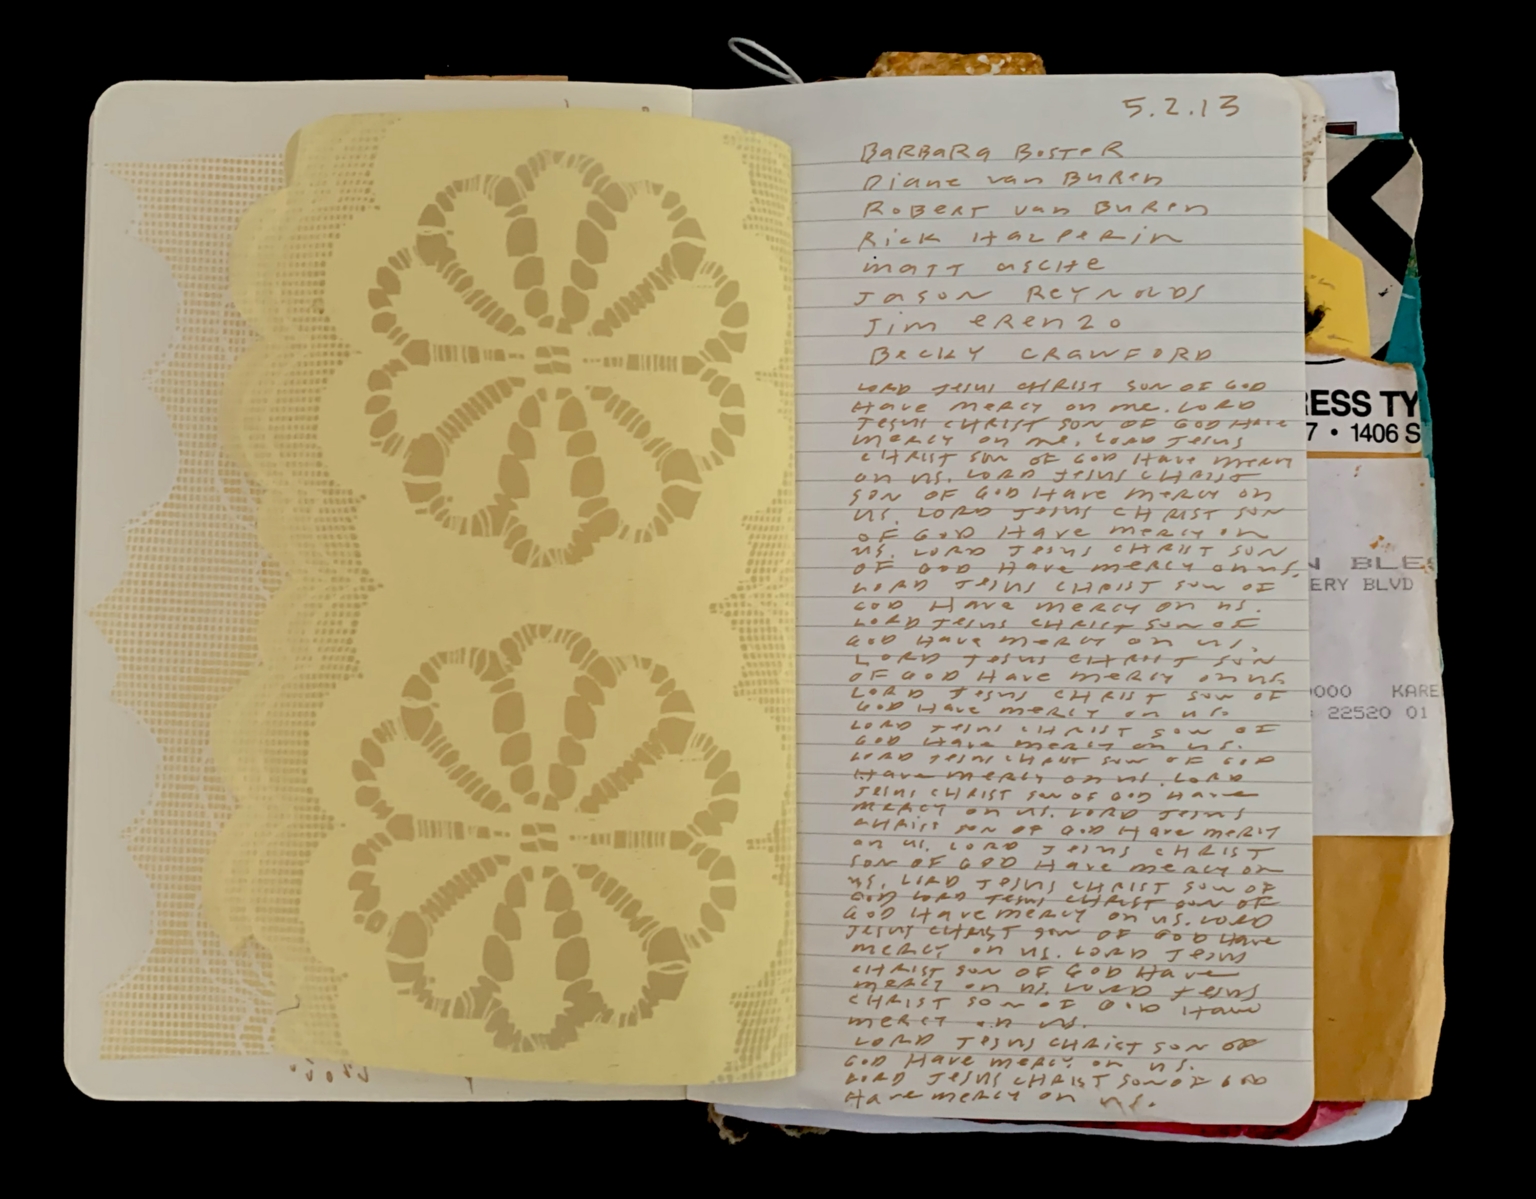 5.2.13
BARBARA BOSTER
Diane van BUREN
ROBERT van BUREN
RICK HALPERIN
MATT ASCHE
JASON REYNOLDS
JIM ERENZO
BECKY CRAWFORD
LORD Jesus CHRIST SON OF GOD
Have mercy on me. LORD
Jesus CHRIST SON OF GOD Have
mercy on me. LORD Jesus
CHRIST SON OF GOD Have mercy
on us. LORD Jesus CHRIST
SON OF GOD Have mercy on
us. LORD Jesus CHRIST SON
OF GOD Have mercy on
us. LORD Jesus CHRIST SON
OF GOD Have mercy on us.
LORD Jesus CHRIST SON OF
GOD Have mercy on us.
LORD Jesus CHRIST SON OF
GOD Have mercy on us.
LORD Jesus CHRIST SON
OF GOD Have mercy on us.
LORD Jesus CHRIST SON OF
GOD Have mercy on us.
LORD Jesus CHRIST SON OF
GOD Have mercy on us.
LORD Jesus CHRIST SON OF GOD
Have mercy on us. LORD
Jesus CHRIST SON OF GOD Have
mercy on us. LORD Jesus
CHRIST SON OF GOD Have mercy
on us. LORD Jesus CHRIST
SON OF GOD Have mercy on
us. LORD Jesus CHRIST SON OF
GOD LORD Jesus CHRIST SON OF
GOD Have mercy on us. LORD
Jesus CHRIST SON OF GOD Have
mercy on us. LORD Jesus
CHRIST SON OF GOD Have
mercy on us. LORD Jesus
CHRIST SON OF GOD Have
mercy on us.
LORD Jesus CHRIST SON OF
GOD Have mercy on us.
LORD Jesus CHRIST SON OF GOD
Have mercy on us.
RESS TY
7 • 1406 S
N BLES
ERY BLVD
0000 KARE
22520 01